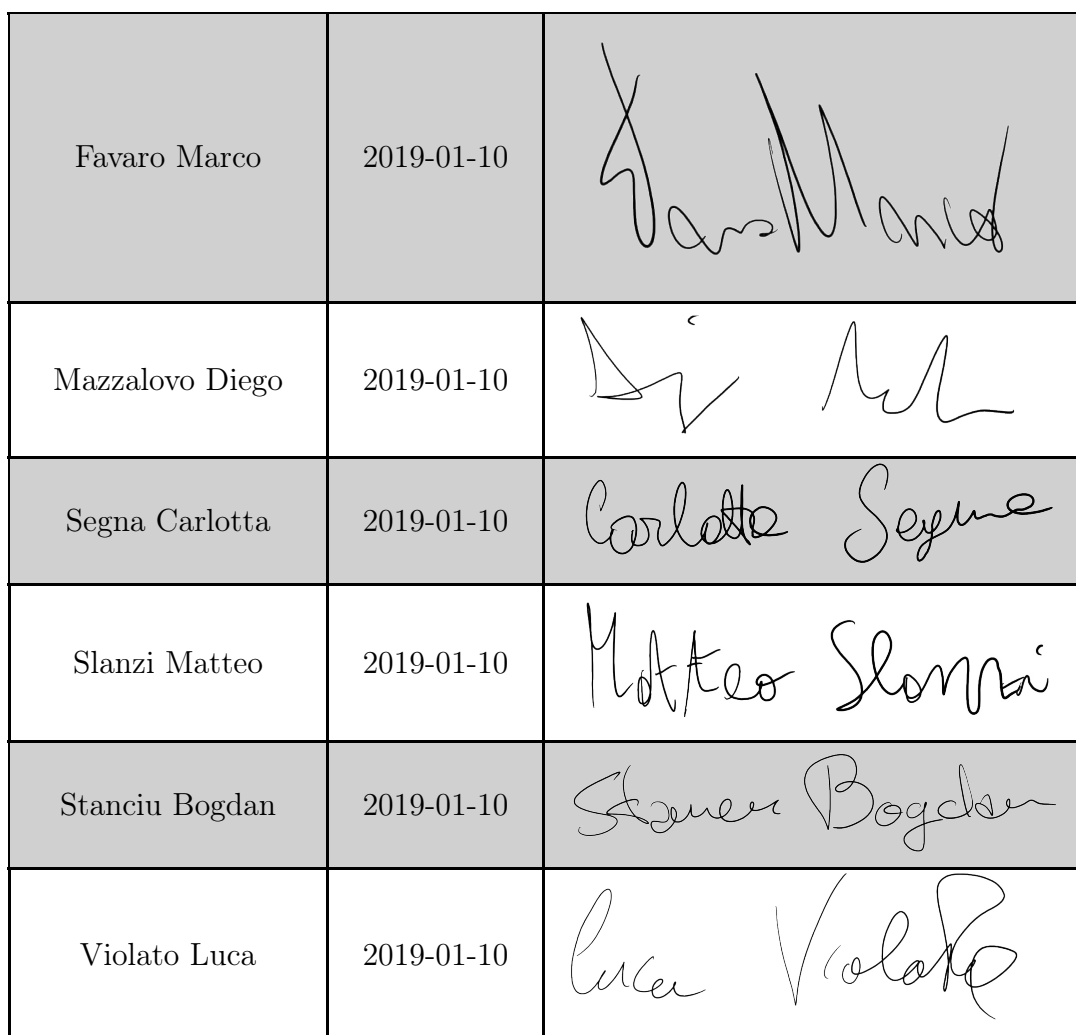 Favaro Marco 2019-01-10 Favaro Marco
Mazzalovo Diego 2019-01-10
Segna Carlotta 2019-01-10 Carlotta Segna
Slanzi Matteo 2019-01-10 Matteo Slanzi
Stanciu Bogdan 2019-01-10 Stanciu Bogdan
Violato Luca 2019-01-10 Luca Violato